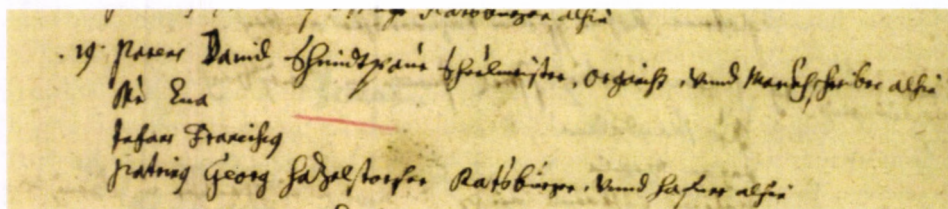 Ratsbürger alhie
19. Parens David Schmidtpaur Schulmeister, Organist, vnnd Marckhschreiber alhie
Eua
Infans Franciscus
Patrinus Georg Hafelstorfer Ratsbürger, vnnd Hafner alhie